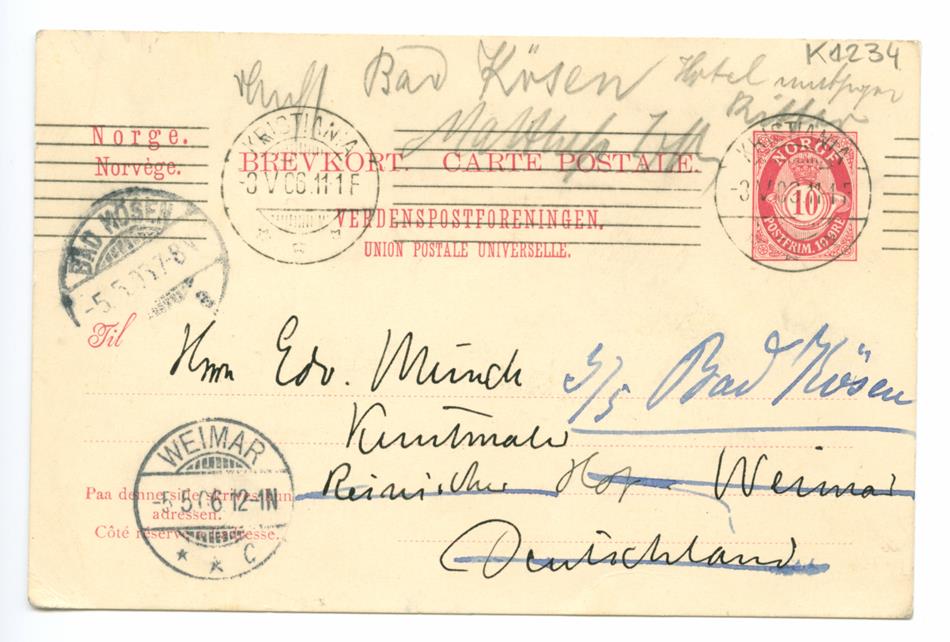 K1234
Bad Kösen Hotel
Norge.
Norvège.
BREVKORT. CARTE POSTALE.
VERDENSPOSTFORENINGEN.
UNION POSTALE UNIVERSELLE.
KRISTIANIA
-3 V 06.11-1 F
KRISTIANIA
NORGE
10
POSTFRIM. 10 ØRE
BAD KÖSEN
-5.5. 7-8
Til
Herrn Edv. Munch
5/5 Bad Kösen
Kunstmaler
Hof Weimar
Deutschland
WEIMAR
-5.5. 6 12-1N
* * C
Paa denne side skrives kun
adressen.
Côté réservé à l'adresse.